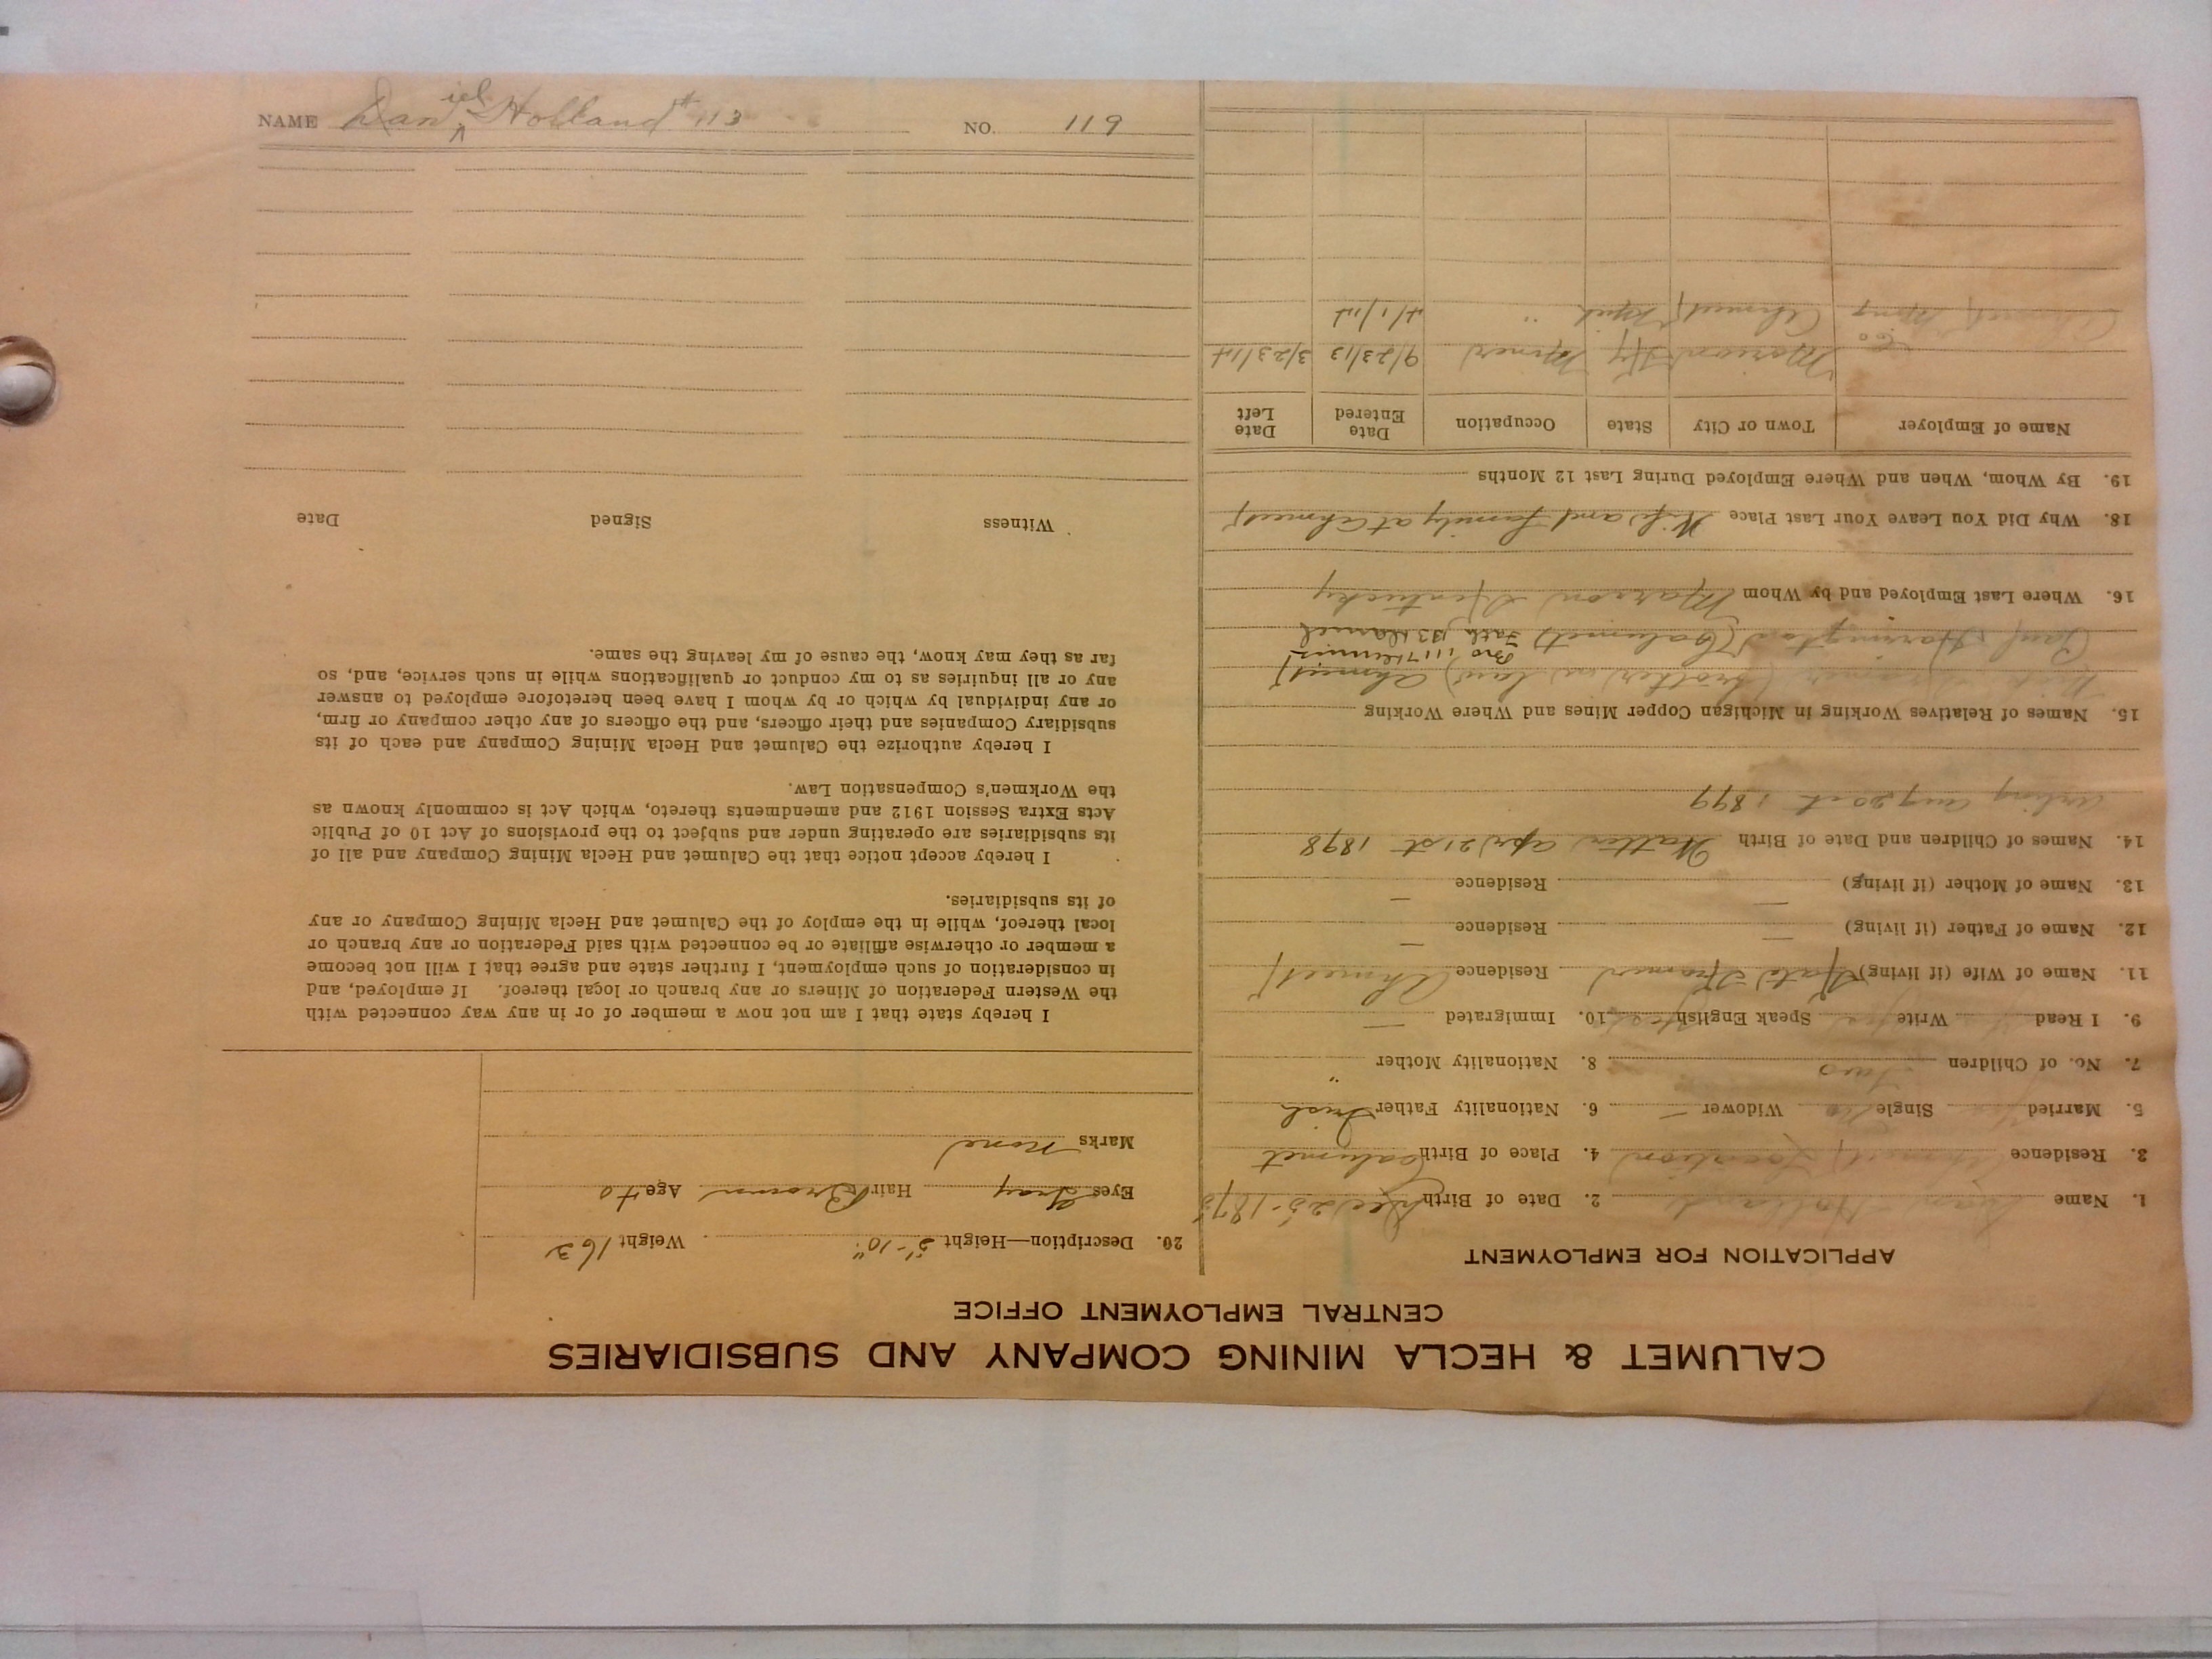 CALUMET & HECLA MINING COMPANY AND SUBSIDIARIES
CENTRAL EMPLOYMENT OFFICE
APPLICATION FOR EMPLOYMENT
1. Name Dan Holland 2. Date of Birth Dec 25-1873
3. Residence Ahmeek Location 4. Place of Birth Calumet
5. Married Single No Widower — 6. Nationality Father Irish
7. No. of Children Two 8. Nationality Mother "
9. I Read Write Speak English 10. Immigrated —
11. Name of Wife (if living) Residence Ahmeek
12. Name of Father (if living) — Residence —
13. Name of Mother (if living) — Residence —
14. Names of Children and Date of Birth Walter Apr 21st 1898
Aug 20st 1899
15. Names of Relatives Working in Michigan Copper Mines and Where Working
(brother in law) Ahmeek
Bro 1117
Harrington (Calumet) Fath 133 Daniel
16. Where Last Employed and by Whom Kentucky
18. Why Did You Leave Your Last Place Wife and family at Ahmeek
19. By Whom, When and Where Employed During Last 12 Months
Name of Employer Town or City State Occupation Date Entered Date Left
Co Marion Ky Miner 9/23/13 3/23/14
Ahmeek Mng Ahmeek Mich " 4/1/14
20. Description—Height 5'-10" Weight 163
Eyes Gray Hair Brown Age 40
Marks None
I hereby state that I am not now a member of or in any way connected with
the Western Federation of Miners or any branch or local thereof. If employed, and
in consideration of such employment, I further state and agree that I will not become
a member or otherwise affiliate or be connected with said Federation or any branch or
local thereof, while in the employ of the Calumet and Hecla Mining Company or any
of its subsidiaries.
I hereby accept notice that the Calumet and Hecla Mining Company and all of
its subsidiaries are operating under and subject to the provisions of Act 10 of Public
Acts Extra Session 1912 and amendments thereto, which Act is commonly known as
the Workmen's Compensation Law.
I hereby authorize the Calumet and Hecla Mining Company and each of its
subsidiary Companies and their officers, and the officers of any other company or firm,
or any individual by which or by whom I have been heretofore employed to answer
any or all inquiries as to my conduct or qualifications while in such service, and, so
far as they may know, the cause of my leaving the same.
Witness Signed Date
NAME Daniel Holland #113 NO. 119